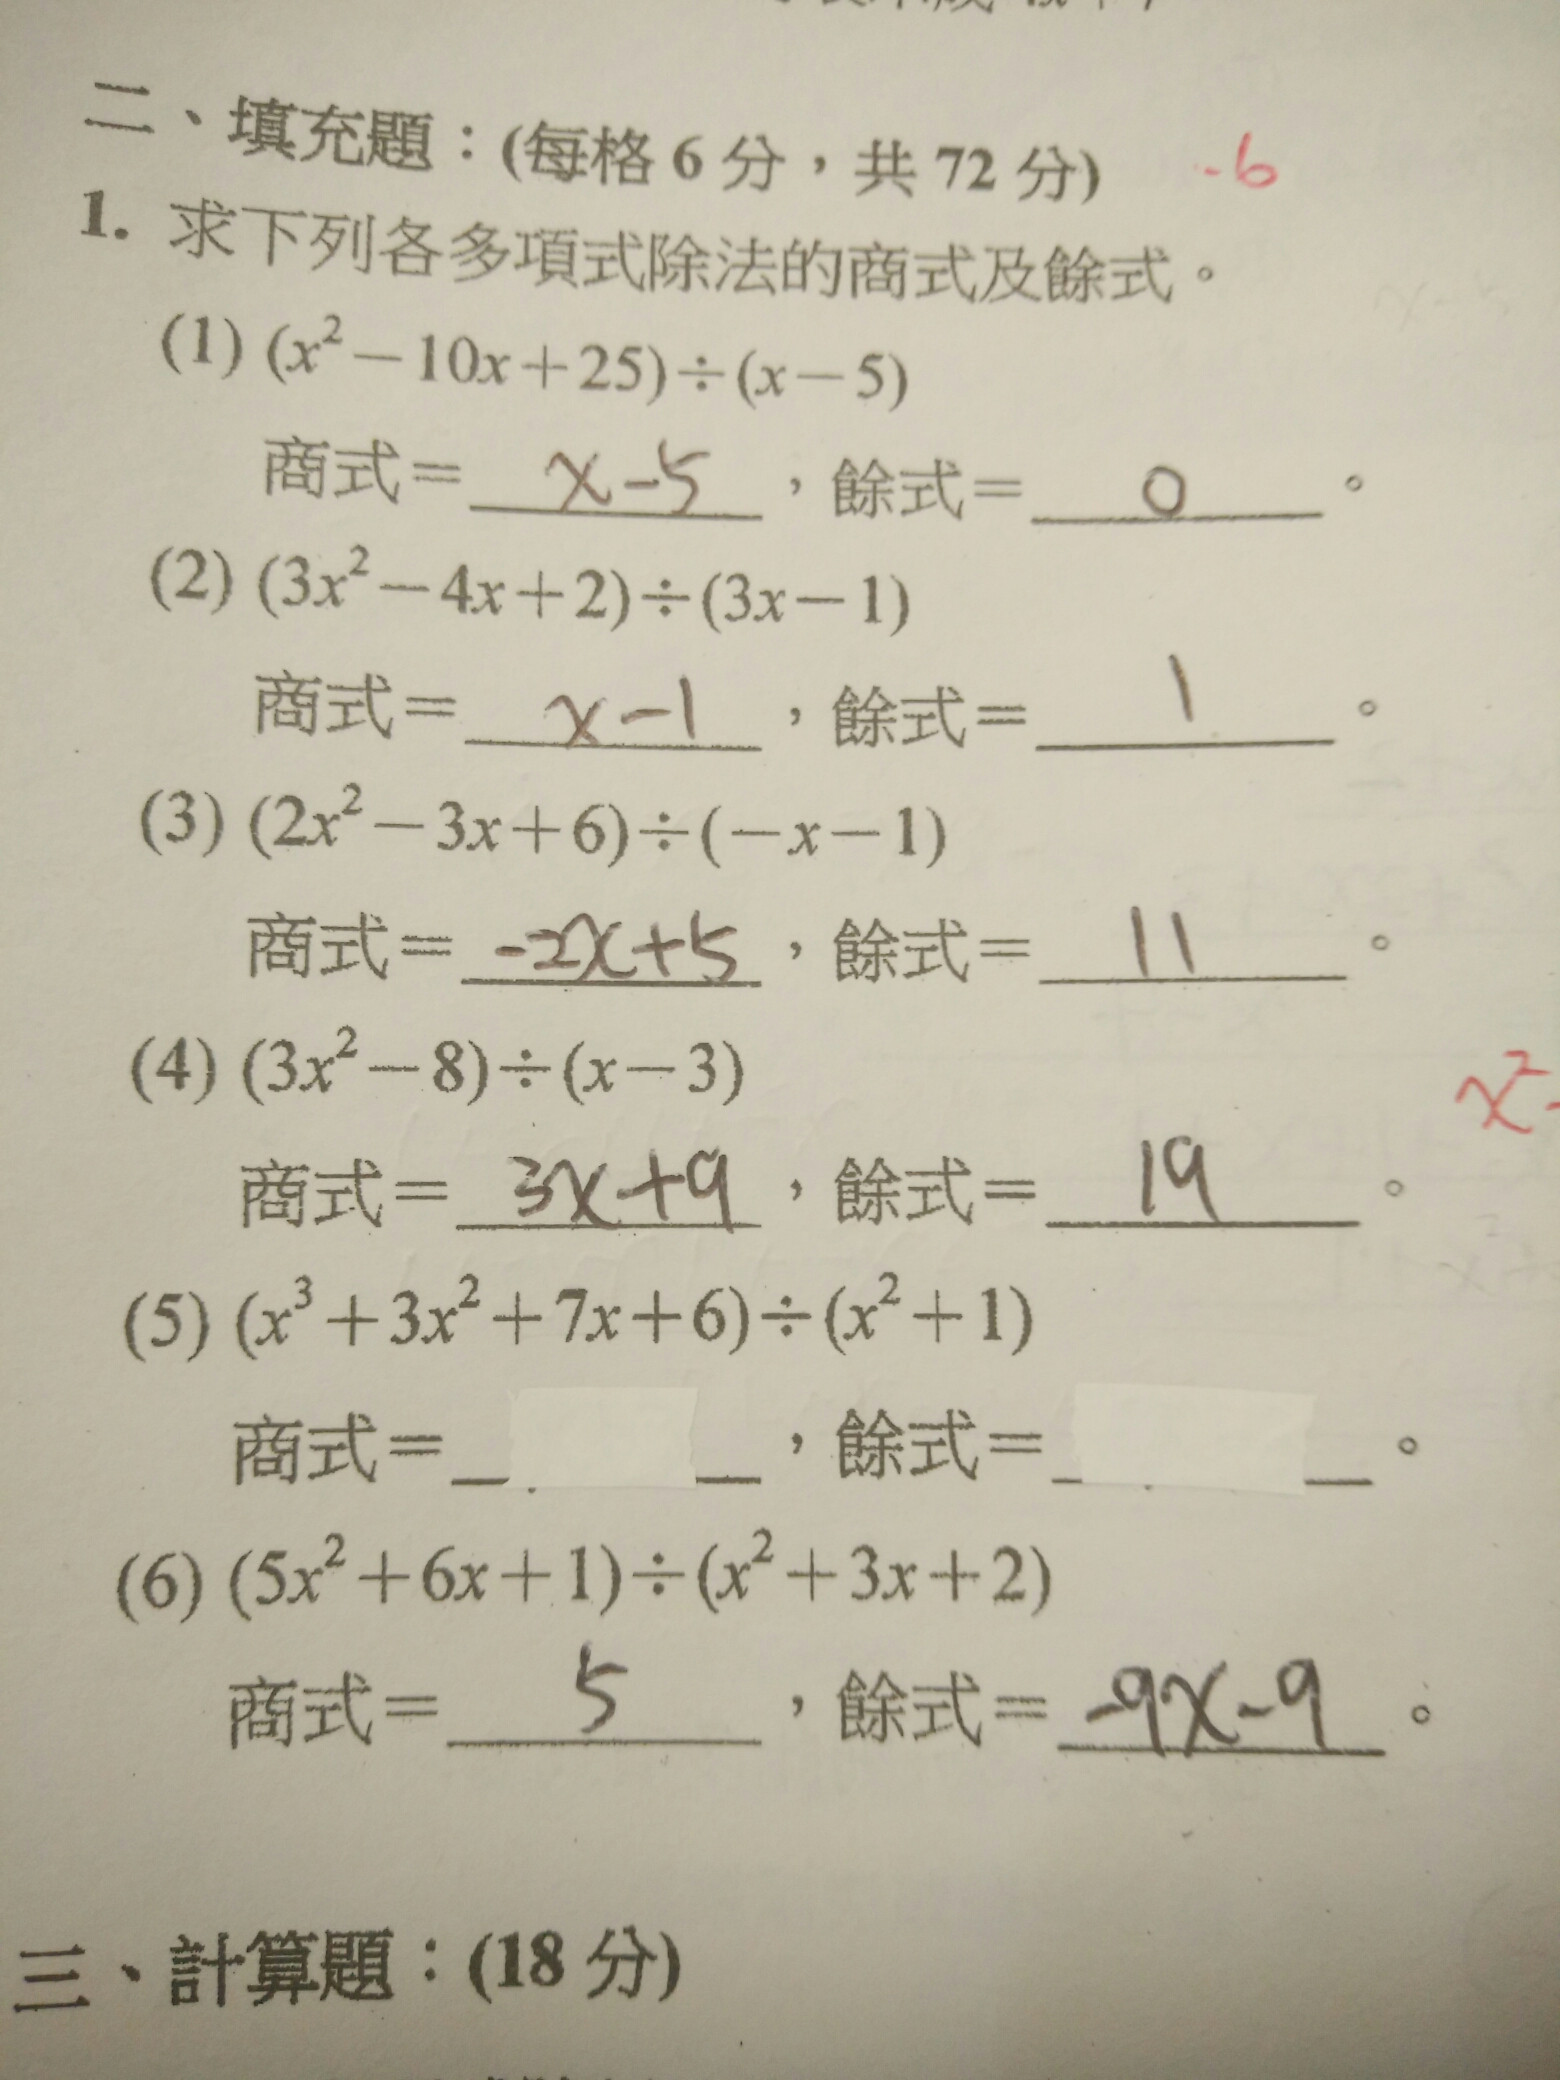 二、填充題：(每格 6 分，共 72 分) -6
1. 求下列各多項式除法的商式及餘式。
(1) (x²－10x＋25)÷(x－5)
商式＝ x-5 ，餘式＝ 0 。
(2) (3x²－4x＋2)÷(3x－1)
商式＝ x-1 ，餘式＝ 1 。
(3) (2x²－3x＋6)÷(－x－1)
商式＝ -2x+5 ，餘式＝ 11 。
(4) (3x²－8)÷(x－3)
x²-
商式＝ 3x+9 ，餘式＝ 19 。
(5) (x³＋3x²＋7x＋6)÷(x²＋1)
商式＝ ，餘式＝ 。
(6) (5x²＋6x＋1)÷(x²＋3x＋2)
商式＝ 5 ，餘式＝ -9x-9 。
三、計算題：(18 分)